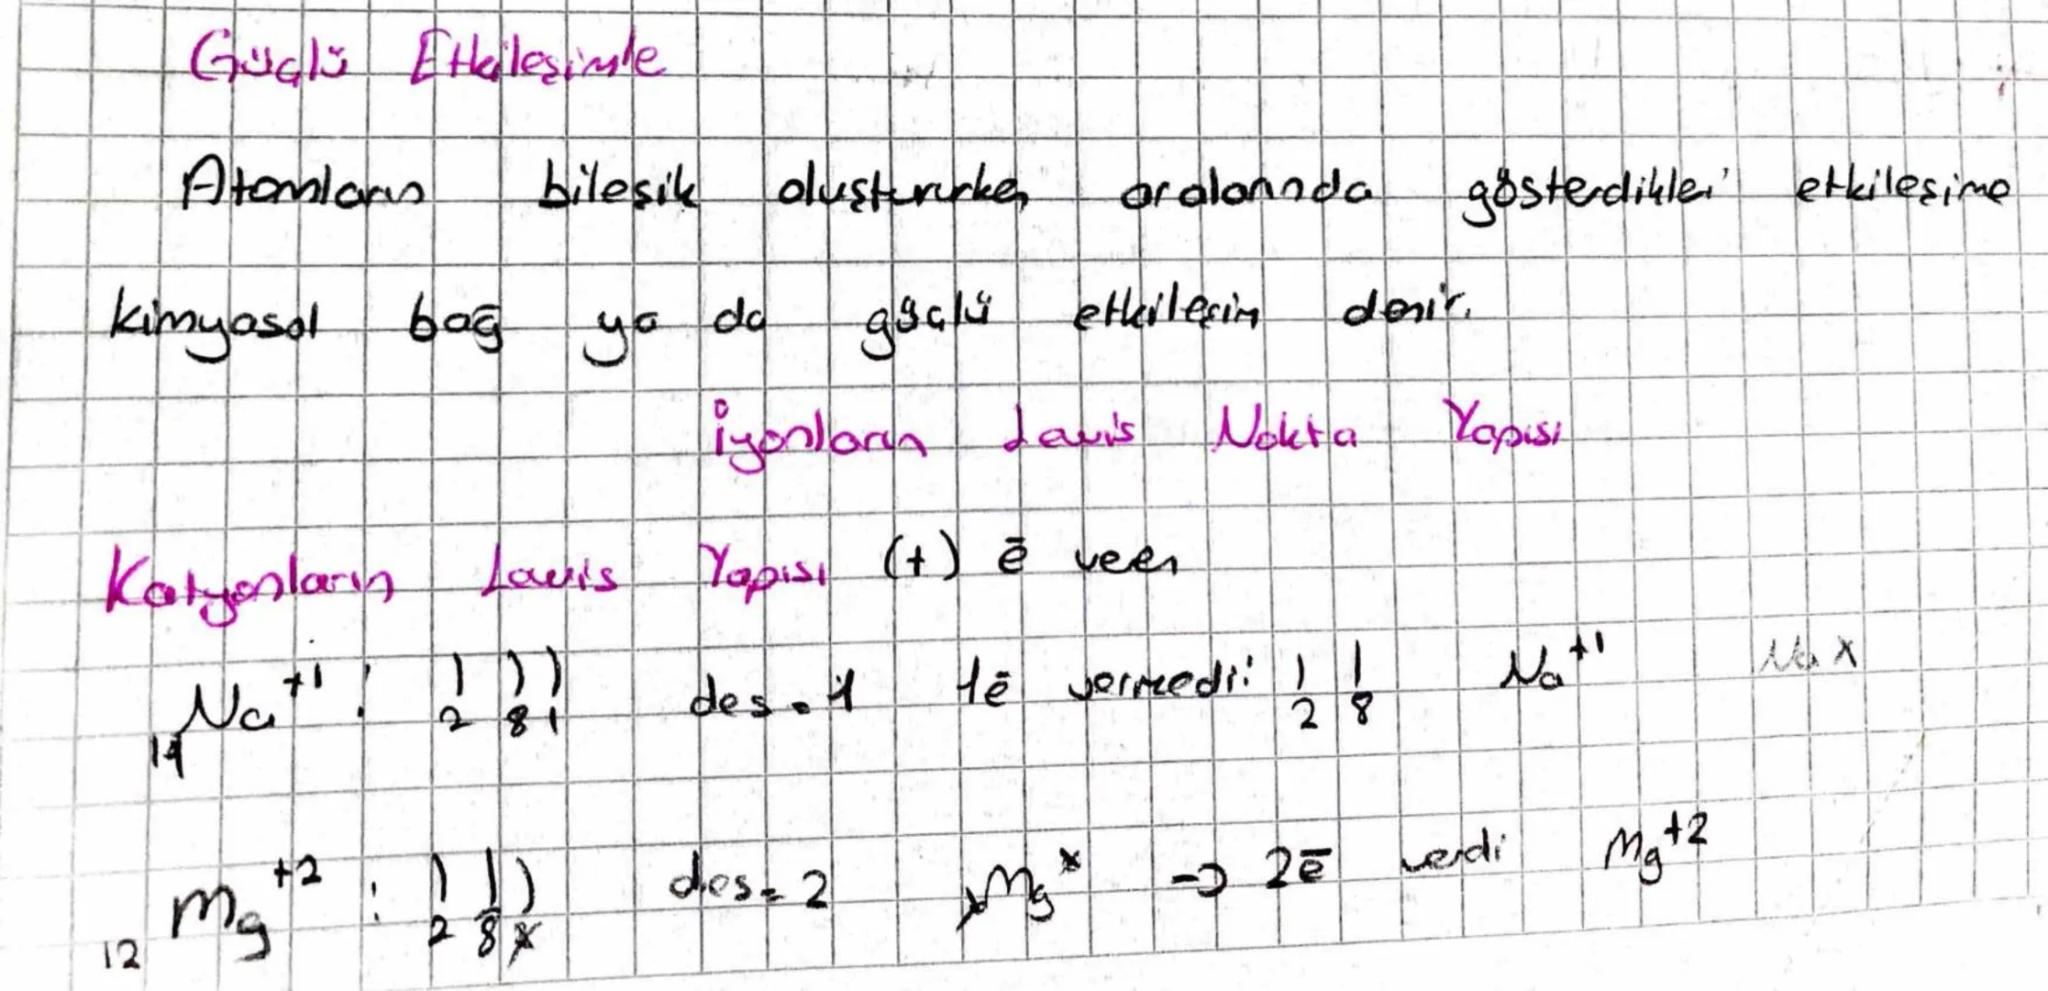 Güçlü Etkileşimle
Atomların bileşik oluştururken aralarında gösterdikleri etkileşime
kimyasal bağ ya da güçlü etkileşim denir.
İyonların Lewis Nokta Yapısı
Katyonların Lewis Yapısı (+) ē veren
11Na+1 : ) ) ) 2 8 1 des = 1 1ē vermedi: ) ) 2 8 Na+1 Na x
12Mg+2 : ) ) ) 2 8 des = 2 xMgx → 2ē verdi Mg+2